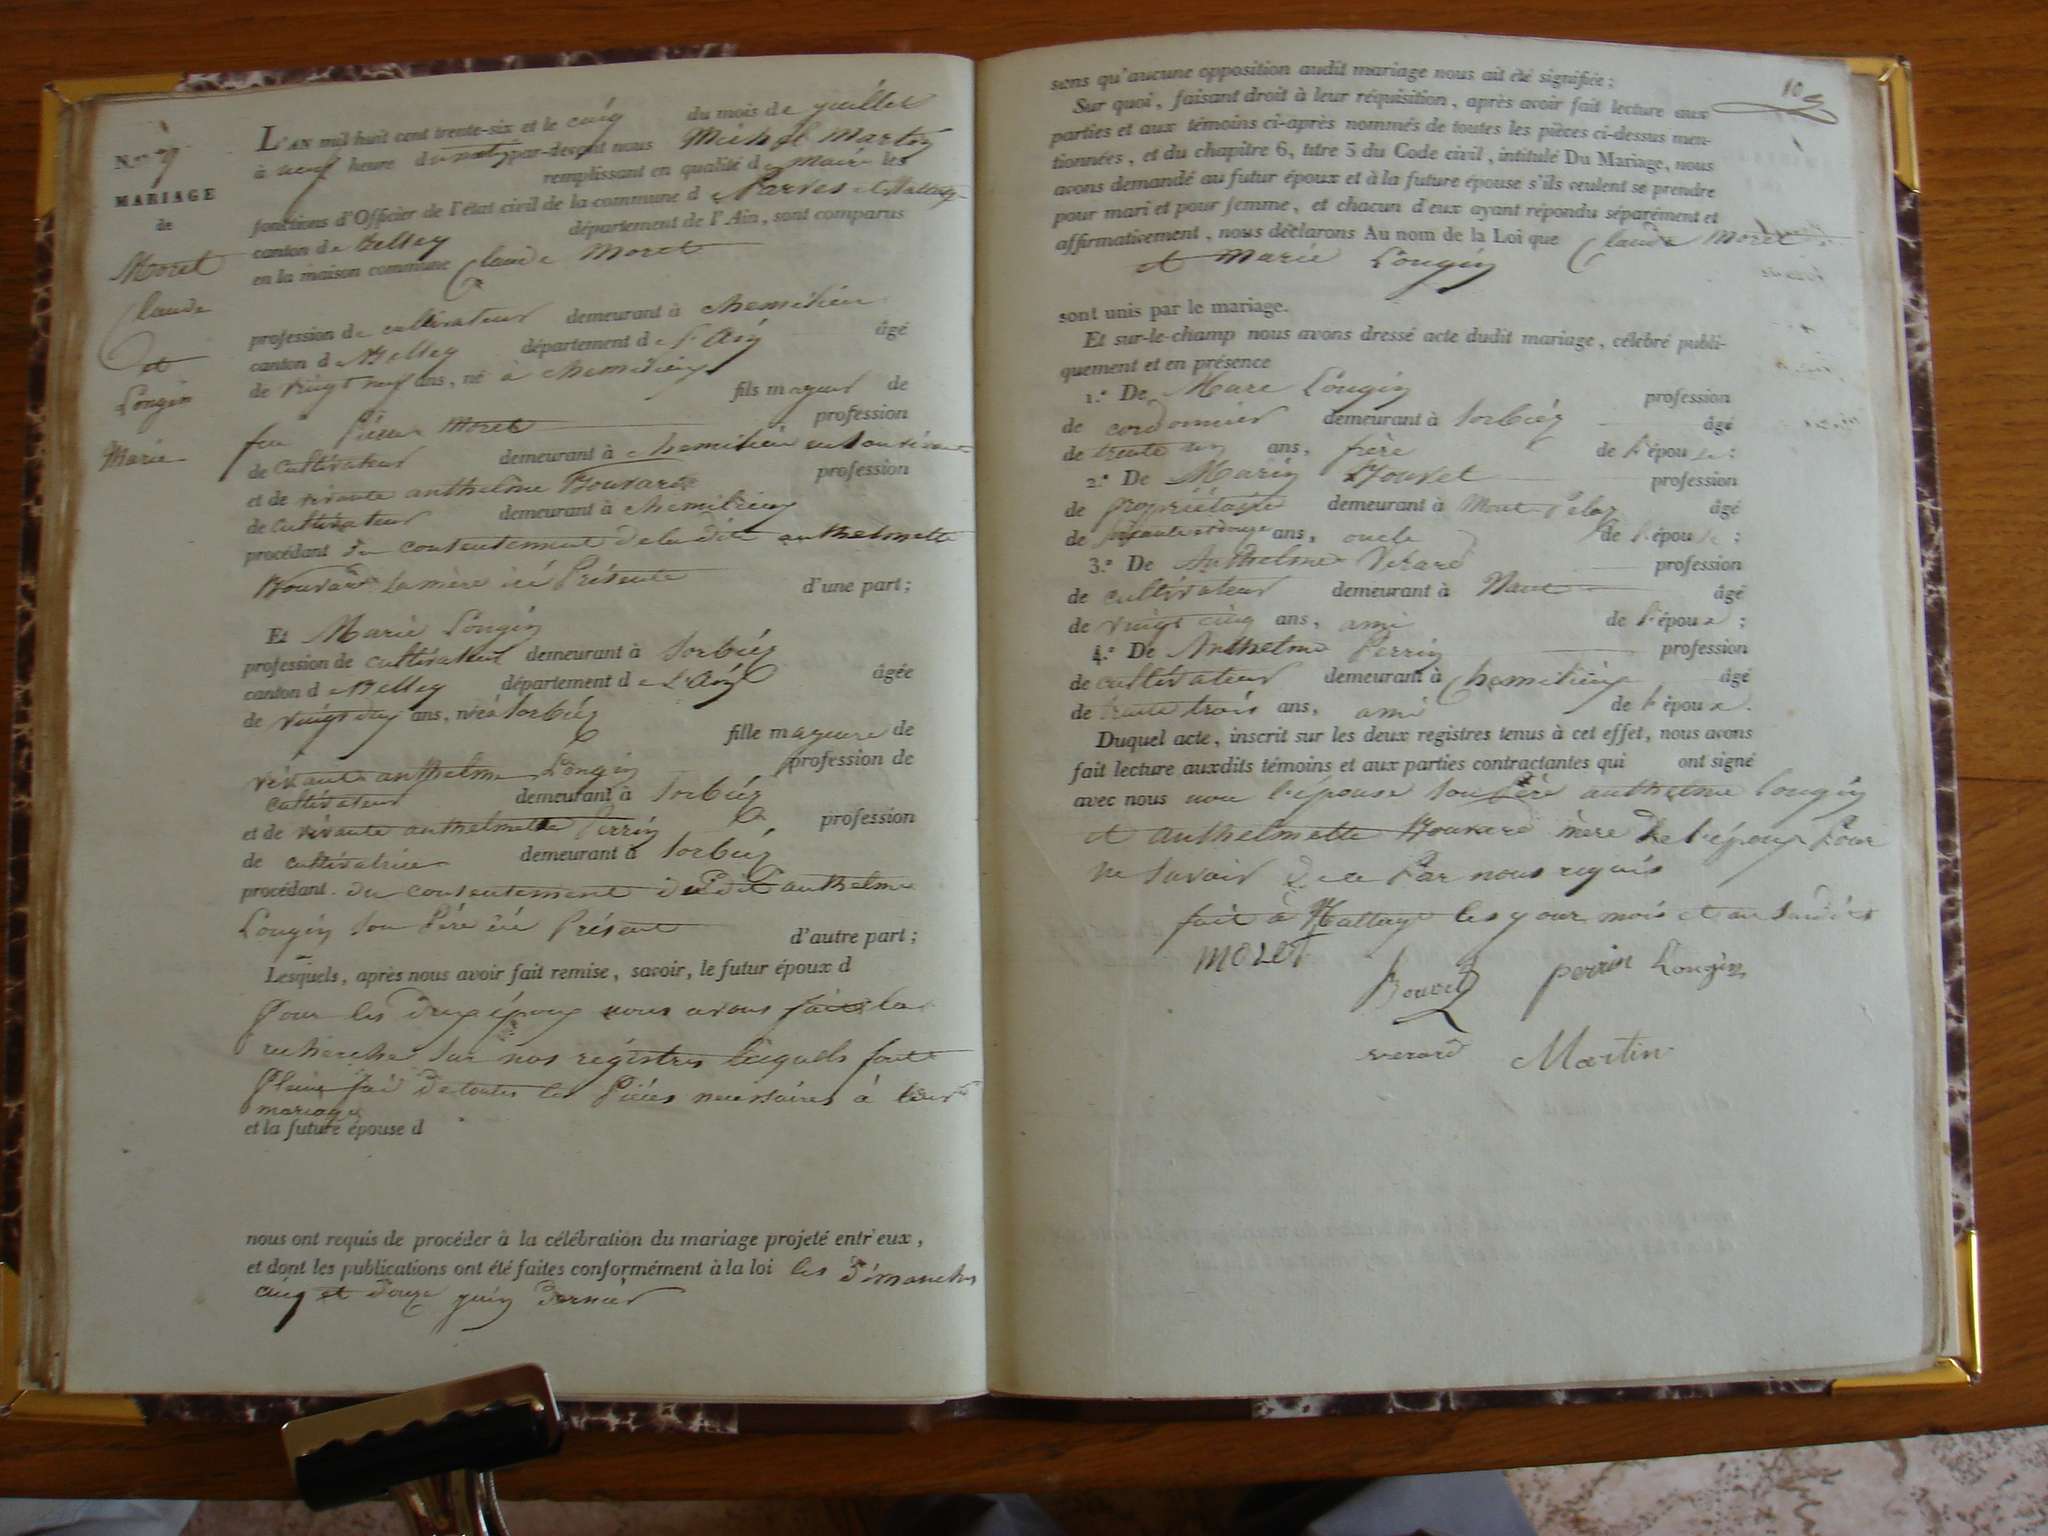 N.º 9
MARIAGE
de
Moret
Claude
et
Longin
Marie
L'AN mil huit cent trente-six et le cinq du mois de juillet
à neuf heure du matin par-devant nous Michel Martin
remplissant en qualité de Maire les
fonctions d'Officier de l'état civil de la commune d Parves et Nattage
canton de Belley département de l'Ain, sont comparus
en la maison commune Claude Moret
profession de cultivateur demeurant à chemilieu
canton de Belley département de L'Ain âgé
de vingt neuf ans, né à chemilieu
fils mayeur de
feu Pierre Moret profession
de cultivateur demeurant à chemilieu en son vivant
et de vivante anthelme Bouvard profession
de cultivateur demeurant à chemilieu
procédant du consentement de la dite anthelmette
Bouvard la mère ici Présente d'une part;
Et Marie Longin
profession de cultivateur demeurant à Sorbiez
canton de Belley département de L'Ain âgée
de vingt ans, née à Sorbiez
fille mayeure de
vivante anthelme Longin profession de
cultivateur demeurant à Sorbiez
et de vivante anthelmette Perrin profession
de cultivatrice demeurant à Sorbiez
procédant du consentement dudit anthelme
Longin son Père ici Présent d'autre part;
Lesquels, après nous avoir fait remise, savoir, le futur époux d
Pour les deux époux nous avons fait la
recherche sur nos régistres lesquels font
Pleine foi de toutes les Pièces necessaires à leur
mariage
et la future épouse d
nous ont requis de procéder à la célébration du mariage projeté entr'eux,
et dont les publications ont été faites conformément à la loi les dimanches
cinq et douze juin dernier
10
sans qu'aucune opposition audit mariage nous ait été signifiée;
Sur quoi, faisant droit à leur réquisition, après avoir fait lecture aux
parties et aux témoins ci-après nommés de toutes les pièces ci-dessus men-
tionnées, et du chapitre 6, titre 5 du Code civil, intitulé Du Mariage, nous
avons demandé au futur époux et à la future épouse s'ils veulent se prendre
pour mari et pour femme, et chacun d'eux ayant répondu séparément et
affirmativement, nous déclarons Au nom de la Loi que Claude Moret
et Marie Longin
sont unis par le mariage.
Et sur-le-champ nous avons dressé acte dudit mariage, célébré publi-
quement et en présence
1.º De Marc Longin profession
de cordonnier demeurant à Sorbiez âgé
de trente un ans, frère de l'épouse;
2.º De Marin Bouvet profession
de propriétaire demeurant à âgé
de soixante et douze ans, oncle de l'épou ;
3.º De Anthelme Verard profession
de cultivateur demeurant à Nant âgé
de vingt cinq ans, ami de l'époux;
4.º De Anthelme Perrin profession
de cultivateur demeurant à Chemilieu âgé
de trente trois ans, ami de l'époux.
Duquel acte, inscrit sur les deux registres tenus à cet effet, nous avons
fait lecture auxdits témoins et aux parties contractantes qui ont signé
avec nous non l'épouse son Père anthelme Longin
et anthelmette Bouvard mère de l'époux Pour
ne savoir de ce Par nous requis
fait à Nattage les jour mois et an susdits
moret
Bouvet perrin Longin
verard Martin